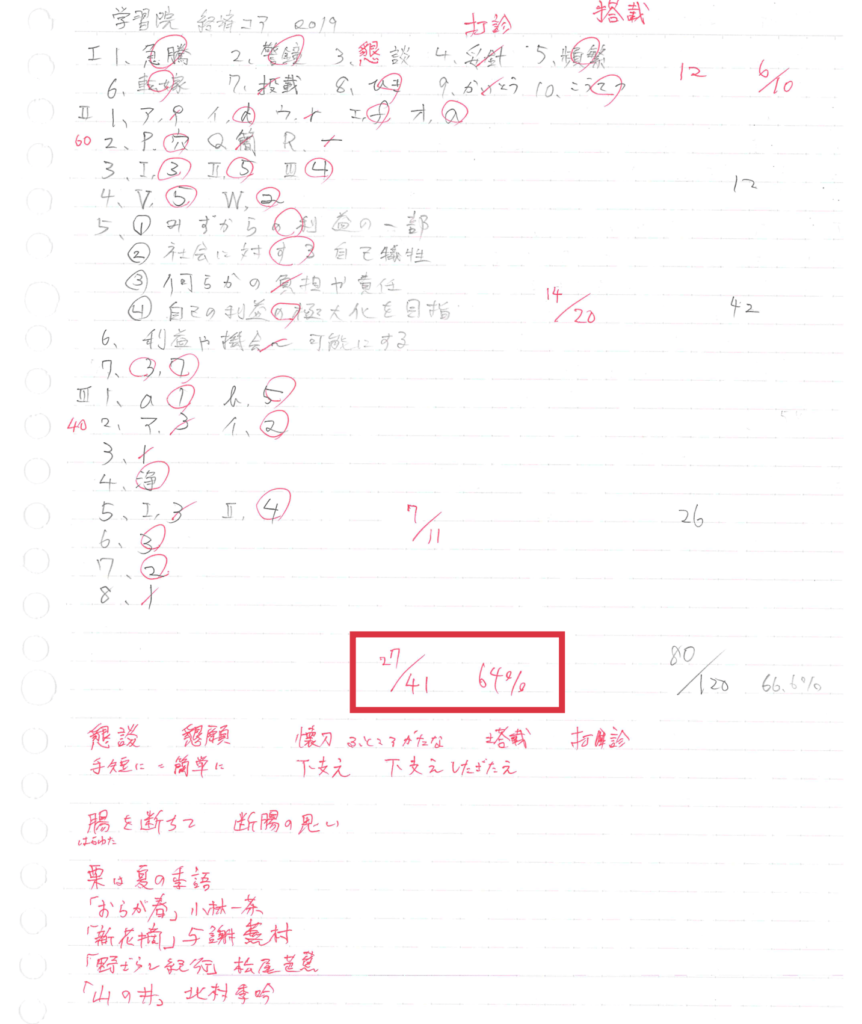 学習院 経済コア 2019 打診 搭載
I 1、急騰 2、警鐘 3、懇談 4、 5、頻繁
12 6/10
6、転嫁 7、搭載 8、ひき 9、かいとう 10、こうてつ
II 1、ア、 イ、d ウ、 エ、f オ、a
60 2、P、穴 Q、簡 R、
3、I、3 II、5 III、4
12
4、V、5 W、2
5、① みずからの利益の一部
② 社会に対する自己犠牲
③ 何らかの負担や責任
④ 自己の利益の極大化を目指
14/20 42
6、利益や機会 可能にする
7、3、7
III 1、a 1 b、5
40 2、ア、3 イ、2
3、1
4、浄
5、I、3 II、4
7/11 26
6、3
7、2
8、1
27/41 64%
80/120 66.6%
懇談 懇願 懐刀 ふところがたな 搭載 打診
手短に=簡単に 下支え 下支え したざたえ
腸を断ちて 断腸の思い
はらわた
栗は夏の季語
「おらが春」小林一茶
「新花摘」与謝蕪村
「野ざらし紀行」松尾芭蕉
「山の井」北村季吟